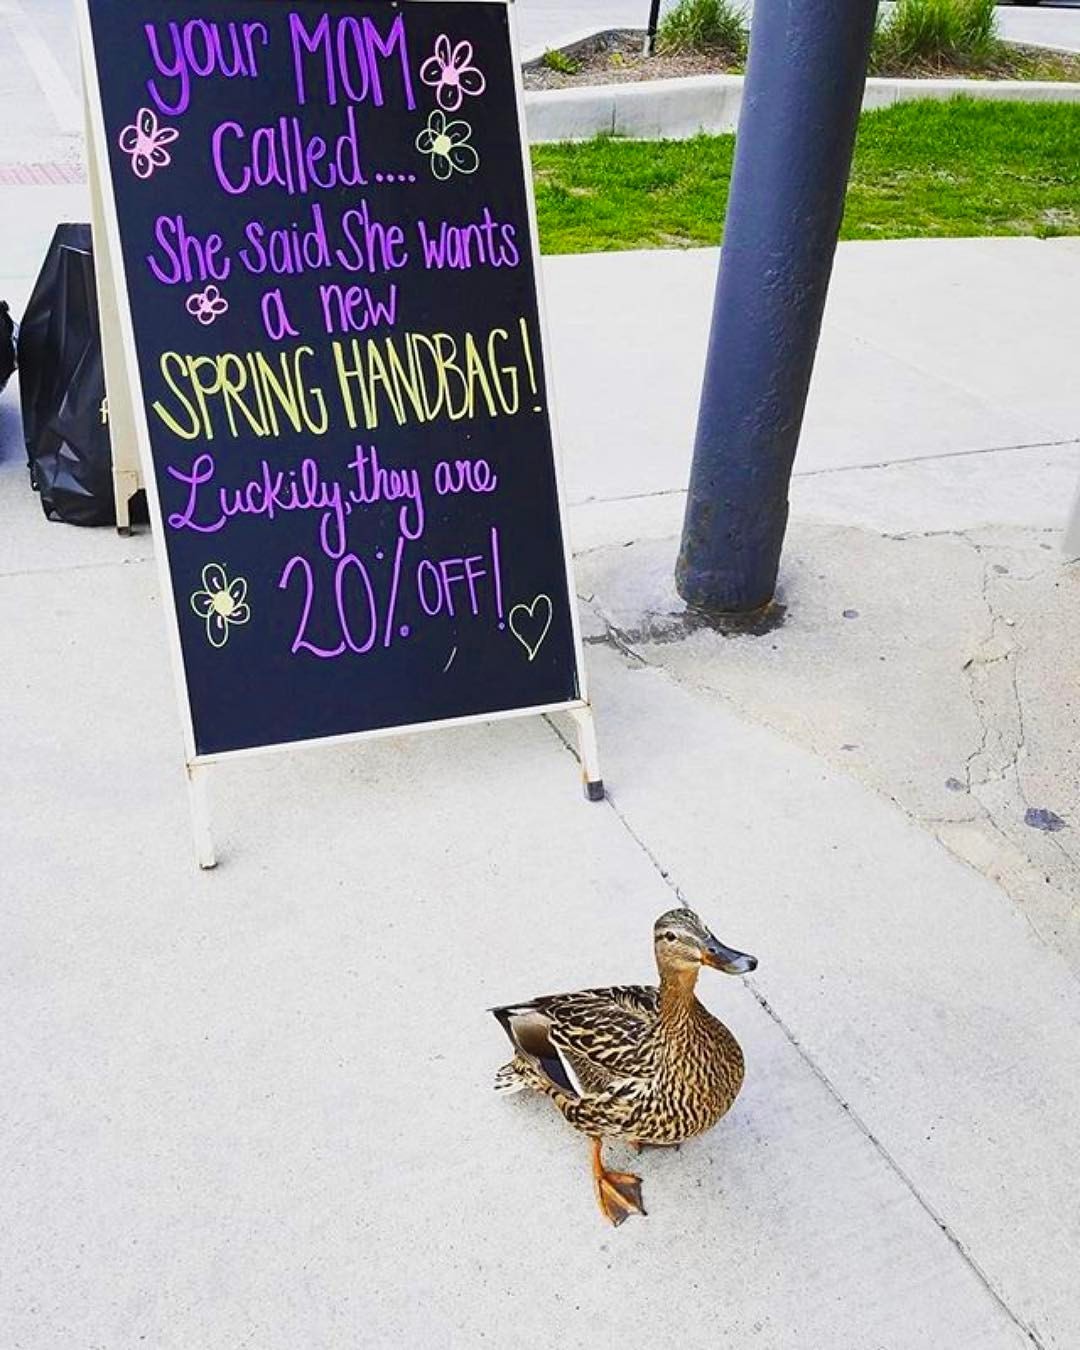 your MOM
called....
She said She wants
a new
SPRING HANDBAG!
Luckily, they are
20% OFF!